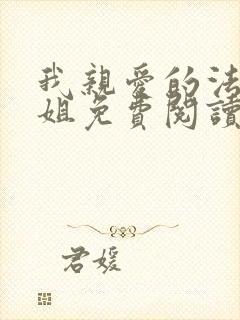 我親愛的法
姐免費閱讀
君媛